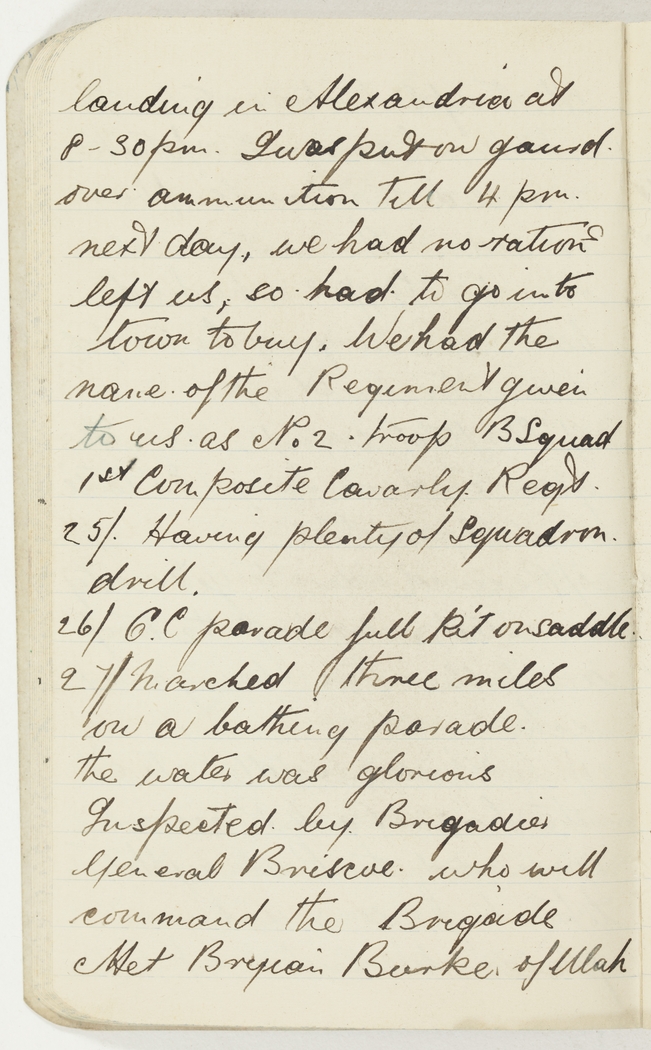 landing in Alexandria at
8-30 pm. I was put on gaurd.
over ammunition till 4 pm.
next day, we had no rations
left us, so had to go into
town to buy. We had the
name of the Regiment given
to us as No. 2. troop B Squad
1st Composite Cavarly. Regt.
25/. Having plenty of Squadron.
drill.
26/ C.C parade full kit on saddle.
27/ Marched three miles
on a bathing parade.
the water was glorious
Inspected by Brigadier
General Briscoe. who will
command the Brigade
Met Burke. of Ulah